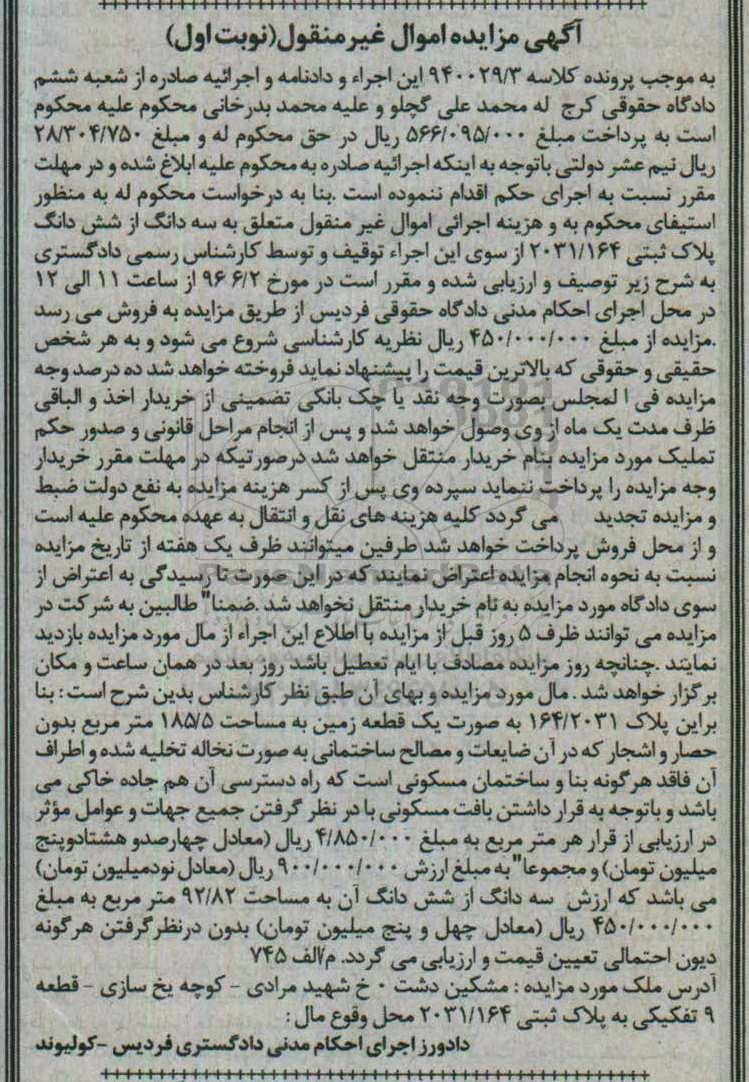 آگهی مزایده اموال غیر منقول(نوبت اول)
به موجب پرونده کلاسه ۹۴۰۰۲۹/۳ این اجراء و دادنامه و اجرائیه صادره از شعبه ششم
دادگاه حقوقی کرج له محمد علی گچلو و علیه محمد بدرخانی محکوم علیه محکوم
است به پرداخت مبلغ ۵۶۶/۰۹۵/۰۰۰ ریال در حق محکوم له و مبلغ ۲۸/۳۰۴/۷۵۰
ریال نیم عشر دولتی باتوجه به اینکه اجرائیه صادره به محکوم علیه ابلاغ شده و در مهلت
مقرر نسبت به اجرای حکم اقدام ننموده است .بنا به درخواست محکوم له به منظور
استیفای محکوم به و هزینه اجرائی اموال غیر منقول متعلق به سه دانگ از شش دانگ
پلاک ثبتی ۲۰۳۱/۱۶۴ از سوی این اجراء توقیف و توسط کارشناس رسمی دادگستری
به شرح زیر توصیف و ارزیابی شده و مقرر است در مورخ ۹۶ ۶/۲ از ساعت ۱۱ الی ۱۲
در محل اجرای احکام مدنی دادگاه حقوقی فردیس از طریق مزایده به فروش می رسد
.مزایده از مبلغ ۴۵۰/۰۰۰/۰۰۰ ریال نظریه کارشناسی شروع می شود و به هر شخص
حقیقی و حقوقی که بالاترین قیمت را پیشنهاد نماید فروخته خواهد شد ده درصد وجه
مزایده فی ا لمجلس بصورت وجه نقد یا چک بانکی تضمینی از خریدار اخذ و الباقی
ظرف مدت یک ماه از وی وصول خواهد شد و پس از انجام مراحل قانونی و صدور حکم
تملیک مورد مزایده بنام خریدار منتقل خواهد شد درصورتیکه در مهلت مقرر خریدار
وجه مزایده را پرداخت ننماید سپرده وی پس از کسر هزینه مزایده به نفع دولت ضبط
و مزایده تجدید می گردد کلیه هزینه های نقل و انتقال به عهده محکوم علیه است
و از محل فروش پرداخت خواهد شد طرفین میتوانند ظرف یک هفته از تاریخ مزایده
نسبت به نحوه انجام مزایده اعتراض نمایند که در این صورت تا رسیدگی به اعتراض از
سوی دادگاه مورد مزایده به نام خریدار منتقل نخواهد شد .ضمنا" طالبین به شرکت در
مزایده می توانند ظرف ۵ روز قبل از مزایده با اطلاع این اجراء از مال مورد مزایده بازدید
نمایند .چنانچه روز مزایده مصادف با ایام تعطیل باشد روز بعد در همان ساعت و مکان
برگزار خواهد شد . مال مورد مزایده و بهای آن طبق نظر کارشناس بدین شرح است : بنا
براین پلاک ۱۶۴/۲۰۳۱ به صورت یک قطعه زمین به مساحت ۱۸۵/۵ متر مربع بدون
حصار و اشجار که در آن ضایعات و مصالح ساختمانی به صورت نخاله تخلیه شده و اطراف
آن فاقد هرگونه بنا و ساختمان مسکونی است که راه دسترسی آن هم جاده خاکی می
باشد و باتوجه به قرار داشتن بافت مسکونی با در نظر گرفتن جمیع جهات و عوامل مؤثر
در ارزیابی از قرار هر متر مربع به مبلغ ۴/۸۵۰/۰۰۰ ریال (معادل چهارصدو هشتادوپنج
میلیون تومان) و مجموعا" به مبلغ ارزش ۹۰۰/۰۰۰/۰۰۰ ریال (معادل نودمیلیون تومان)
می باشد که ارزش سه دانگ از شش دانگ آن به مساحت ۹۲/۸۲ متر مربع به مبلغ
۴۵۰/۰۰۰/۰۰۰ ریال (معادل چهل و پنج میلیون تومان) بدون درنظرگرفتن هرگونه
دیون احتمالی تعیین قیمت و ارزیابی می گردد. م/الف ۷۴۵
آدرس ملک مورد مزایده : مشکین دشت ۰ خ شهید مرادی - کوچه یخ سازی - قطعه
۹ تفکیکی به پلاک ثبتی ۲۰۳۱/۱۶۴ محل وقوع مال :
دادورز اجرای احکام مدنی دادگستری فردیس -کولیوند